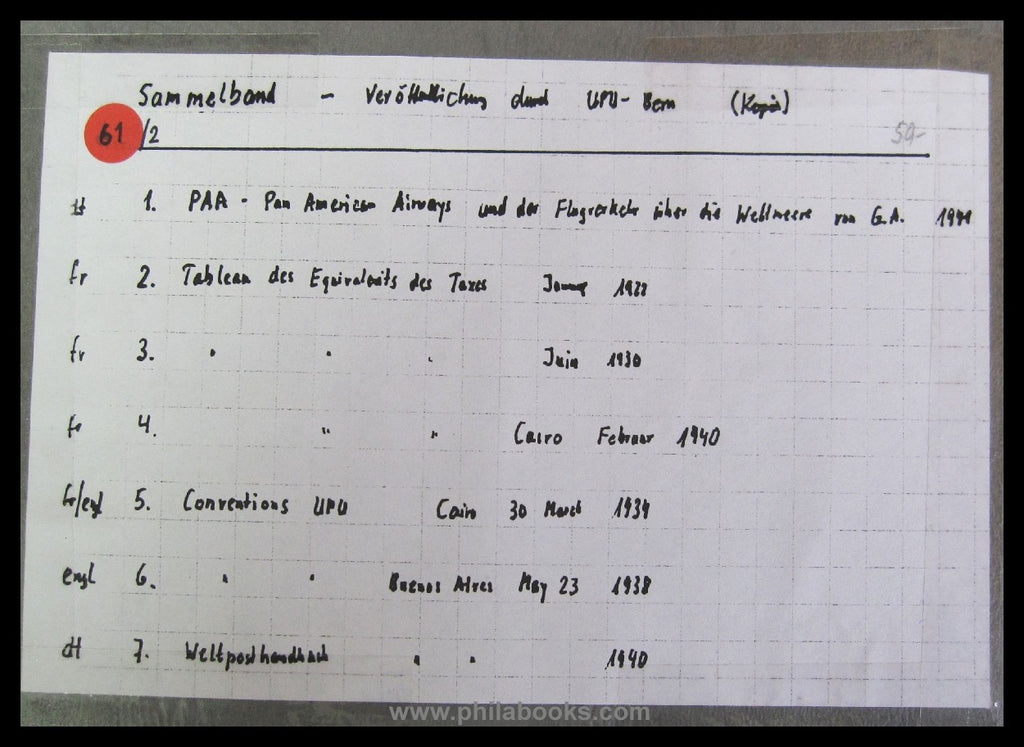 Sammelband - Veröffentlichung durch UPU-Bern (Kopie)
61/2 50,-
dt 1. PAA - Pan American Airways und der Flugverkehr über die Weltmeere von G.A.
fr 2. Tableau des Equivalents des Taxes
fr 3. " " " Juin 1930
fr 4. " " Cairo Februar 1940
fr/engl 5. Conventions UPU Cairo 30 March 1934
engl 6. " " Buenos Aires May 23 1938
dt 7. Weltposthandbuch " " 1940
www.philabooks.com